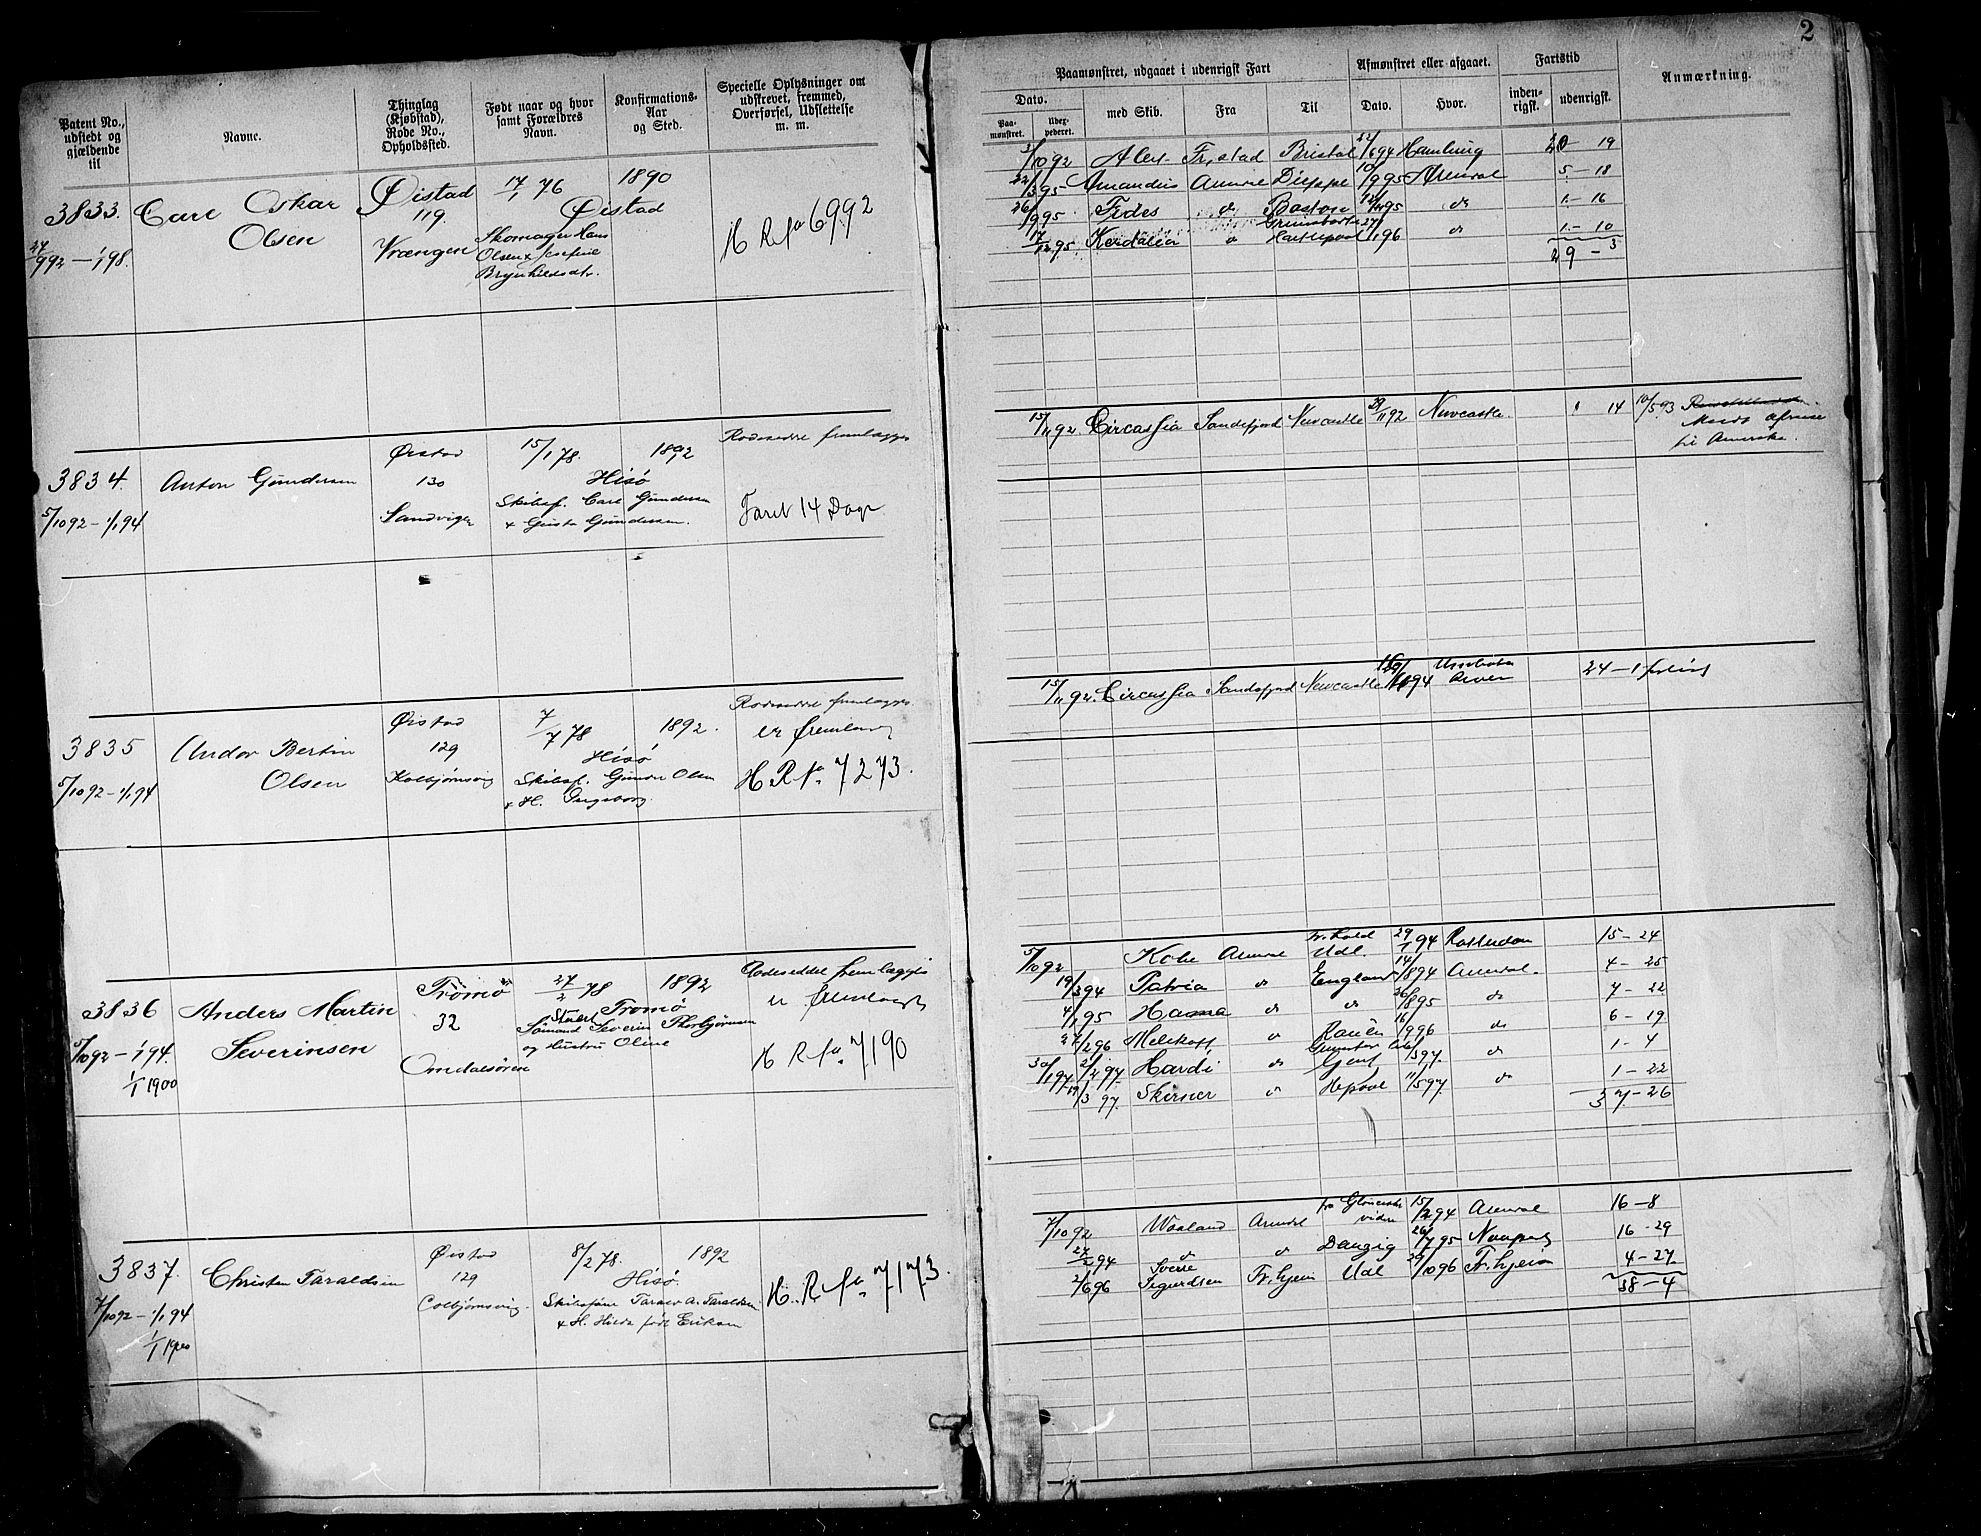 2
Patent No., udstedt og gjældende til
Navne.
Thinglag (Kjøbstad), Rode No., Opholdssted.
Født naar og hvor samt Forældres Navn.
Konfirmations-Aar og Sted.
Specielle Oplysninger om udskrevet, fremmed, Overførsel, Udslettelse m. m.
Paamønstret, udgaaet i udenrigsk Fart
Afmønstret eller afgaaet.
Fartstid
Anmærkning.
Dato.
Paa-mønstret.
Udex-pederet.
med Skib.
Fra
Til
Dato.
Hvor.
inden-rigsk.
udenrigsk.
3833.
27/9 92 — 1/1 98.
Carl Oskar
Olsen
Øistad
119.
Vrængen
17/1 76
1890
Øistad
Skomager Hans
Olsen & Josefine
Brynhildsdtr.
H R No 6992
3/10 92 Alert Fr.stad Bristol 22/6 94 Hamburg 20 19
22/3 95 Amandus Arendal Dieppe 10/9 95 Arendal 5 - 18
26/9 95 Fides do Boston 12/11 95 do 1 - 16
17/12 95 Kordalia do Hartlepool 27/1 96 do 1 - 10
29 - 3
3834.
5/10 92 - 1/1 94
Anton Gundersen
Øistad
130
Sandvigen
15/1 78.
1892
Hisø
Skibsf. Carl Gundersen
& Gusta Gundersen.
Rodeseddel fremlagges
Faret 14 Dage
15/11 92 Circassia Sandefjord Newcastle 29/11 92 Newcastle. " 14 10/5 93
afreise
til Amerika.
3835
5/10 92 - 1/1 94
Andor Bertin
Olsen
Øistad
129
Kolbjørnsvig
7/7 78
1892.
Hisø
Skibsf. Gunder Olsen
& H. Ingeborg.
Rodeseddel fremlagges
er fremlagt
H R No 7273.
15/11 92. Circassia Sandefjord Newcastle 94 24 - 1 forlist
3836
5/10 92 - 1/1 94.
1/1 1900
Anders Martin
Severinsen
Tromø
32
Omdalsøren
27/2 78
1892
Tromø
Sømand Severin Thorbjørnsen
og Hustru Oline
Rodeseddel fremlægges
er fremlagt
H R No 7190
5/10 92 Kobe Arendal Udl. 29/1 94 Rotterdam 15 - 24
19/3 94 Patria do England 14/8 94 Arendal. 4 - 25
4/1 95 Hasna do do 26/8 95 do 7 - 22
27/2 96 Melikoff do Rouen 16/9 96 do 6 - 19
30/1 97 2/2 97. Hardi do Gent /3 97. do 1 - 4
19/3 97. Skirner do Hpool 11/5 97. do 1 - 22
37 - 26
3837.
7/10 92 - 1/1 94
1/1 1900
Christen Taraldsen
Øistad
129
Colbjørnsvig.
8/2 78.
1892
Hisø.
Skibsfører Tarald A. Taraldsen
& H. Hilda født Eriksen
H. R No 7173.
7/10 92 Waaland Arendal Gloucester videre 15/2 94 Arendal 16 - 8
27/2 94 do do Danzig 26/7 95 Newport 16 - 29
2/6 96 Sverre Sigurdsen Fr.hjem Udl 29/10 96 Fr.hjem 4 - 27.
38 - 4